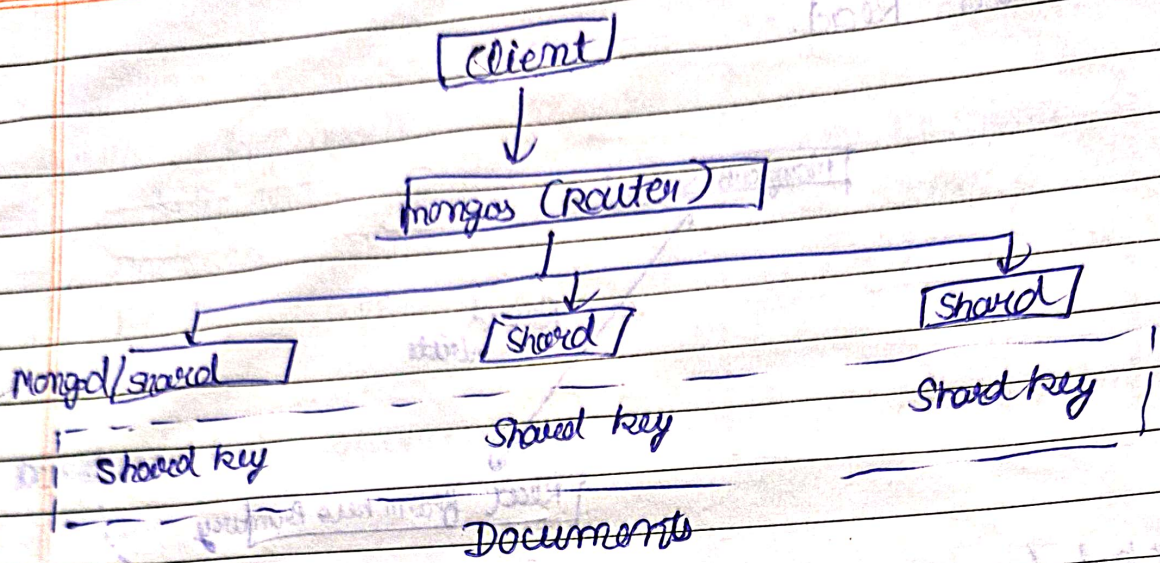 Client
mongos (Router)
Mongod/shard
Shard
Shard
Shard key
Shard key
Shard key
Documents